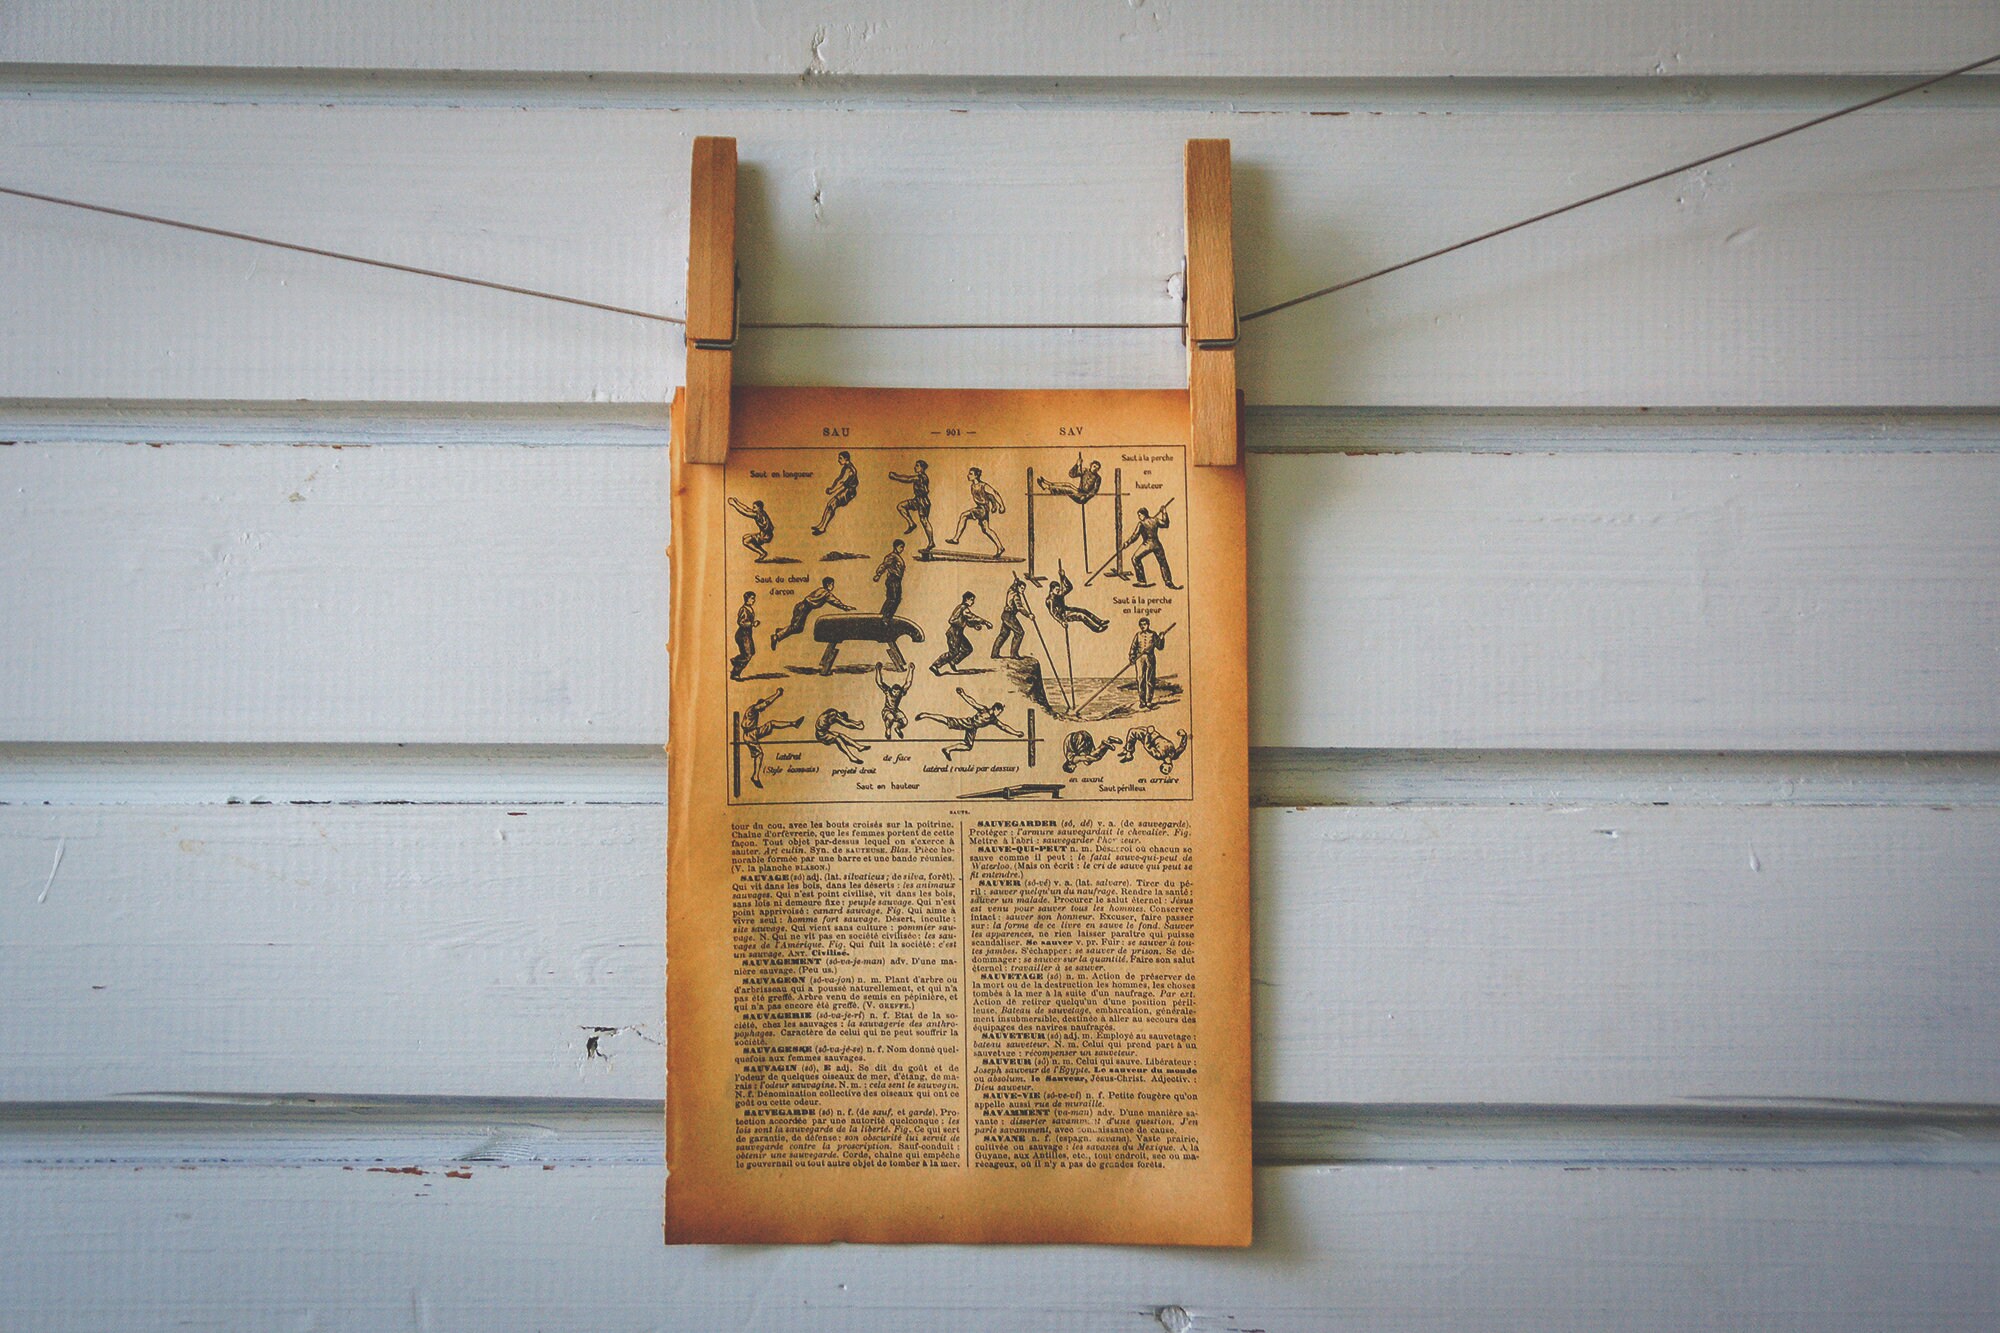 SAU — 901 — SAV
Saut en longueur
Saut à la perche
en
hauteur
Saut du cheval
d'arçon
Saut à la perche
en largeur
latéral
(Style
projeté droit
de face
latéral (roulé par dessus)
Saut en hauteur
en avant
en arrière
Saut périlleux
SAUTS.
tour du cou, avec les bouts croisés sur la poitrine.
Chaîne d'orfèvrerie, que les femmes portent de cette
façon. Tout objet par-dessus lequel on s'exerce à
sauter. Art culin. Syn. de SAUTEUSE. Blas. Pièce ho-
norable formée par une barre et une bande réunies.
(V. la planche BLASON.)
SAUVAGE (sô) adj. (lat. silvaticus; de silva, forêt).
Qui vit dans les bois, dans les déserts : les animaux
sauvages. Qui n'est point civilisé, vit dans les bois,
sans lois ni demeure fixe : peuple sauvage. Qui n'est
point apprivoisé : canard sauvage. Fig. Qui aime à
vivre seul : homme fort sauvage. Désert, inculte :
site sauvage. Qui vient sans culture : pommier sau-
vage. N. Qui ne vit pas en société civilisée : les sau-
vages de l'Amérique. Fig. Qui fuit la société : c'est
un sauvage. ANT. Civilisé.
SAUVAGEMENT (sô-va-je-man) adv. D'une ma-
nière sauvage. (Peu us.)
SAUVAGEON (sô-va-jon) n. m. Plant d'arbre ou
d'arbrisseau qui a poussé naturellement, et qui n'a
pas été greffé. Arbre venu de semis en pépinière, et
qui n'a pas encore été greffé. (V. GREFFE.)
SAUVAGERIE (sô-va-je-rî) n. f. Etat de la so-
ciété, chez les sauvages : la sauvagerie des anthro-
pophages. Caractère de celui qui ne peut souffrir la
société.
SAUVAGESSE (sô-va-jè-se) n. f. Nom donné quel-
quefois aux femmes sauvages.
SAUVAGIN (sô), E adj. Se dit du goût et de
l'odeur de quelques oiseaux de mer, d'étang, de ma-
rais : l'odeur sauvagine. N. m. : cela sent le sauvagin.
N. f. Dénomination collective des oiseaux qui ont ce
goût ou cette odeur.
SAUVEGARDE (sô) n. f. (de sauf, et garde). Pro-
tection accordée par une autorité quelconque : les
lois sont la sauvegarde de la liberté. Fig. Ce qui sert
de garantie, de défense : son obscurité lui servit de
sauvegarde contre la proscription. Sauf-conduit :
obtenir une sauvegarde. Corde, chaîne qui empêche
le gouvernail ou tout autre objet de tomber à la mer.
SAUVEGARDER (sô, dé) v. a. (de sauvegarde).
Protéger : l'armure sauvegardait le chevalier. Fig.
Mettre à l'abri : sauvegarder
SAUVE-QUI-PEUT n. m. Désarroi où chacun se
sauve comme il peut : le fatal sauve-qui-peut de
Waterloo. (Mais on écrit : le cri de sauve qui peut se
fit entendre.)
SAUVER (sô-vé) v. a. (lat. salvare). Tirer du pé-
ril : sauver quelqu'un du naufrage. Rendre la santé :
sauver un malade. Procurer le salut éternel : Jésus
est venu pour sauver tous les hommes. Conserver
intact : sauver son honneur. Excuser, faire passer
sur : la forme de ce livre en sauve le fond. Sauver
les apparences, ne rien laisser paraître qui puisse
scandaliser. Se sauver v. pr. Fuir : se sauver à tou-
tes jambes. S'échapper : se sauver de prison. Se dé-
dommager : se sauver sur la quantité. Faire son salut
éternel : travailler à se sauver.
SAUVETAGE (sô) n. m. Action de préserver de
la mort ou de la destruction les hommes, les choses
tombés à la mer à la suite d'un naufrage. Par ext.
Action de retirer quelqu'un d'une position péril-
leuse. Bateau de sauvetage, embarcation, générale-
ment insubmersible, destinée à aller au secours des
équipages des navires naufragés.
SAUVETEUR (sô) adj. m. Employé au sauvetage :
bateau sauveteur. N. m. Celui qui prend part à un
sauvetage : récompenser un sauveteur.
SAUVEUR (sô) n. m. Celui qui sauve. Libérateur :
Joseph sauveur de l'Egypte. Le sauveur du monde
ou absolum. le Sauveur, Jésus-Christ. Adjectiv. :
Dieu sauveur.
SAUVE-VIE (sô-ve-vî) n. f. Petite fougère qu'on
appelle aussi rue de muraille.
SAVAMMENT (va-man) adv. D'une manière sa-
vante : disserter savamment d'une question. J'en
parle savamment, avec connaissance de cause.
SAVANE n. f. (espagn. savana). Vaste prairie,
cultivée ou sauvage : les savanes du Mexique. A la
Guyane, aux Antilles, etc., tout endroit, sec ou ma-
récageux, où il n'y a pas de grandes forêts.